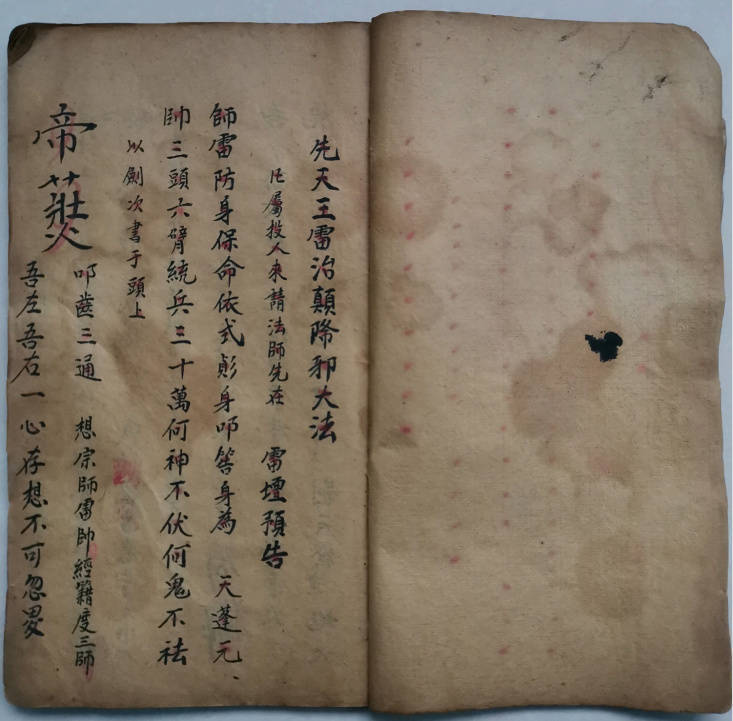 先天王雷治顛降邪大法
凡屬投人來請法師先在 雷壇預告
師雷防身保命依式彩身叩筶身為 天蓬元
帥三頭六臂統兵三十萬何神不伏何鬼不祛
以劍次書于頭上
帝
叩齒三通 想宗師雷帥經籍度三師
吾左吾右一心存想不可忽畧